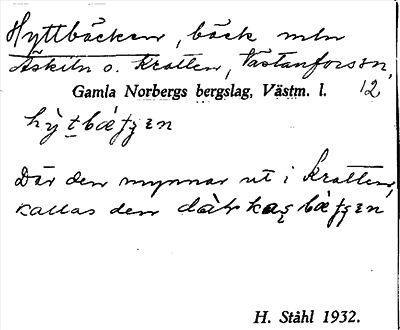 Hyttbäcken, bäck mln
Åskiln o. Kratten, Västanforssn,
Gamla Norbergs bergslag, Västm. l. 12
Där den mynnar ut i Kratten,
kallas den
H. Ståhl 1932.